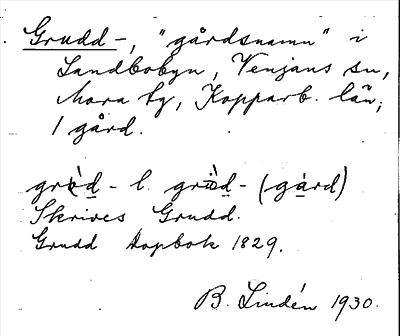 Grudd-, "gårdsnamn" i
Landbobyn, Venjans sn,
Mora tg, Kopparb. län,
1 gård.
gròd- l. gròd- (gård)
Skrives Grudd.
Grudd Dopbok 1829.
B. Lindén 1930.